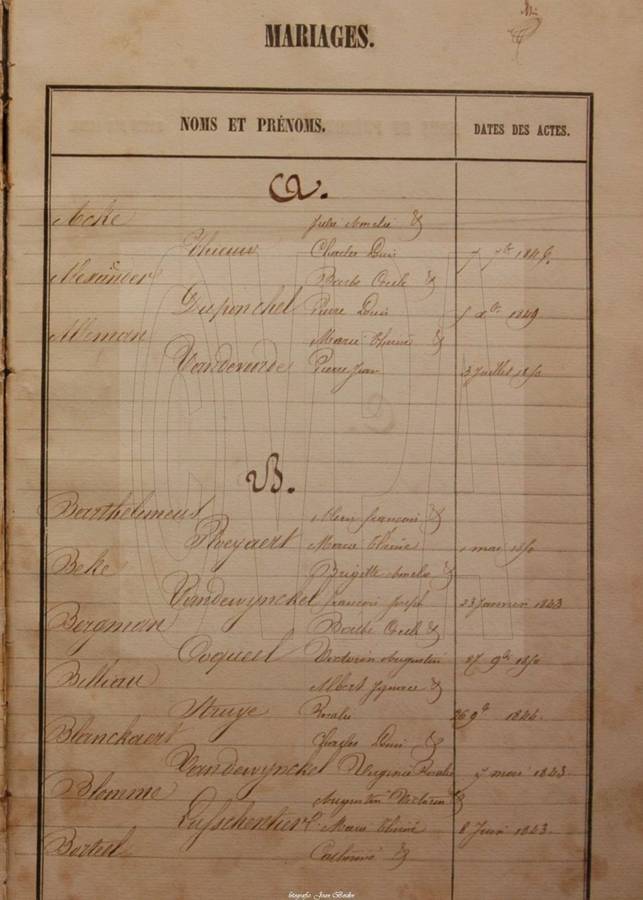 MARIAGES.
NOMS ET PRÉNOMS. DATES DES ACTES.
A.
Acke Julie Amelie &
Charles Louis 7 7bre 1846.
Alexander Barbe Cecile &
Duponchel Pierre Louis 1849
Alleman Marie Thérèse &
Vandevoorde Pierre Jean 3 Juillet 1850
B.
Barthelemeus françois &
Ploeyaert Marie Thérèse 1 mai 1850
Beke Brigitte Amelie &
Vandewynckel françois Joseph 23 Janvier 1843
Bergman Barbe Cecile &
Coqueil Victorin Augustin 27 9bre 1850
Billiau Albert Ignace &
Struye Rosalie 26 9b 1846.
Blanckaert Charles Louis &
Vandewynckel Virginie Rosalie 7 mai 1843
Blomme Augustin Victorin &
Marie Thérèse 8 Juin 1843.
Catherine &
fotografie: Joan Beddez